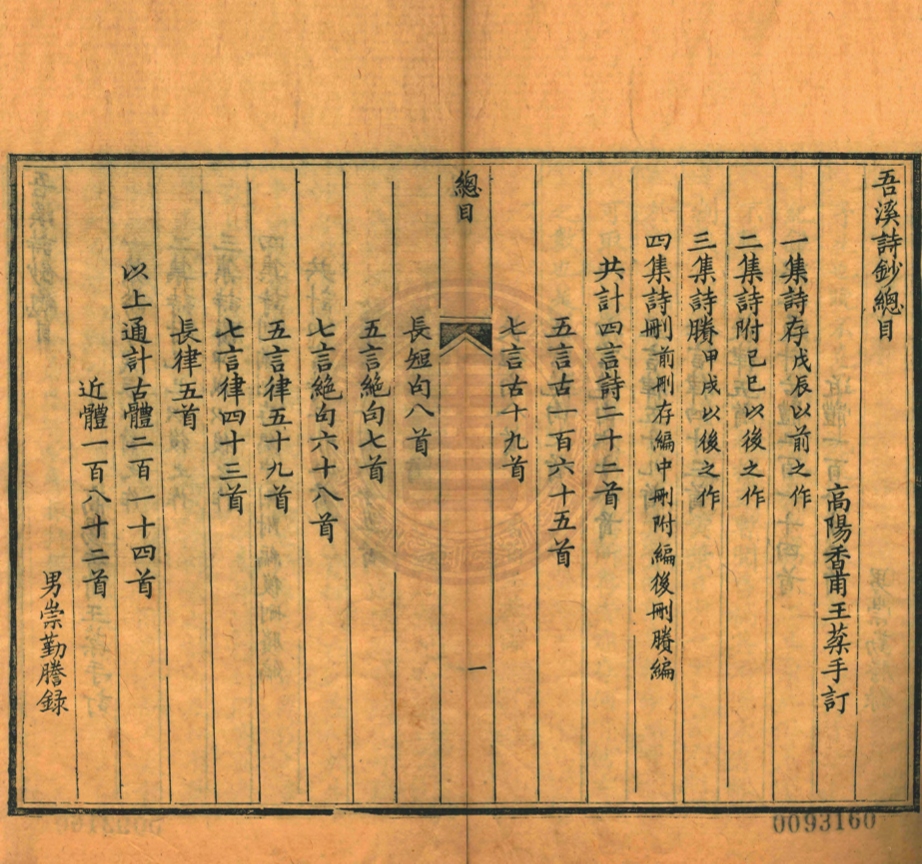 吾溪詩鈔總目
高陽香甫王棻手訂
一集詩存戊辰以前之作
二集詩附己巳以後之作
三集詩賸甲戌以後之作
四集詩刪前刪存編中刪附編後刪賸編
共計四言詩二十二首
五言古一百六十五首
七言古十九首
總目
一
長短句八首
五言絶句七首
七言絶句六十八首
五言律五十九首
七言律四十三首
長律五首
以上通計古體二百一十四首
近體一百八十二首
男崇勤謄録
0093160